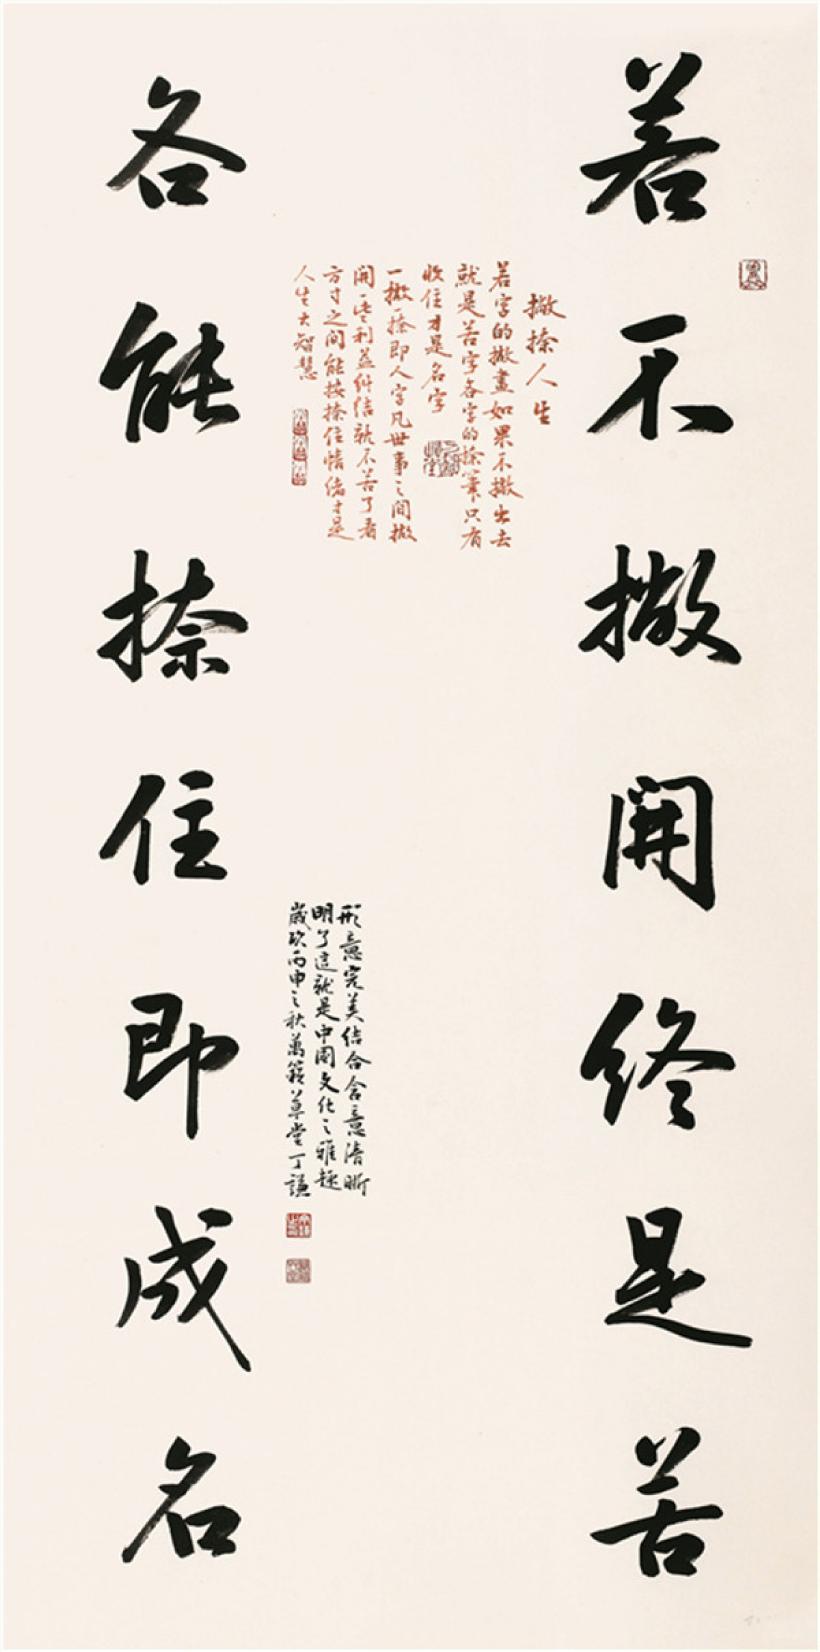 若不撇開終是苦
撇捺人生
若字的撇畫如果不撇出去
就是苦字各字的捺筆只有
收住才是名字
一撇一捺即人字凡世事之间撇
開一些利益糾结就不苦了看
方寸之间能按捺住情绪才是
人生大智慧
形意完美结合含意清晰
明了這就是中國文化之雅趣
歲次丙申之秋萬籟草堂丁謙
各能捺住即成名